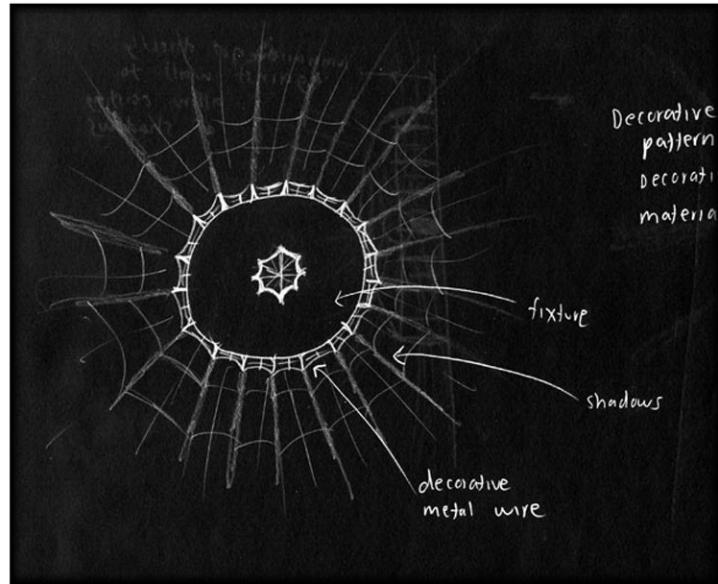 Decorative
pattern
Decorati
materia
fixture
shadows
decorative
metal wire